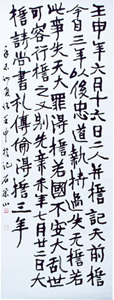 壬申年六月十六日二人并誓記天前誓
今自三年以後忠道執持過失无誓若
此事失天大罪得誓若國不安大乱世
可容行誓之又別先辛未年七月廿二日大
誓詩尚書礼傳倫得誓三年